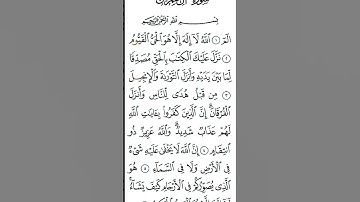 سورة آل عمران
بسم الله الرحمن الرحيم
الٓمٓ ١ ٱللَّهُ لَآ إِلَٰهَ إِلَّا هُوَ ٱلْحَىُّ ٱلْقَيُّومُ
٢ نَزَّلَ عَلَيْكَ ٱلْكِتَٰبَ بِٱلْحَقِّ مُصَدِّقًا
لِّمَا بَيْنَ يَدَيْهِ وَأَنزَلَ ٱلتَّوْرَىٰةَ وَٱلْإِنجِيلَ
٣ مِن قَبْلُ هُدًى لِّلنَّاسِ وَأَنزَلَ
ٱلْفُرْقَانَ إِنَّ ٱلَّذِينَ كَفَرُوا۟ بِـَٔايَٰتِ ٱللَّهِ
لَهُمْ عَذَابٌ شَدِيدٌ وَٱللَّهُ عَزِيزٌ ذُو
ٱنتِقَامٍ ٤ إِنَّ ٱللَّهَ لَا يَخْفَىٰ عَلَيْهِ شَىْءٌ
فِى ٱلْأَرْضِ وَلَا فِى ٱلسَّمَآءِ ٥ هُوَ
ٱلَّذِى يُصَوِّرُكُمْ فِى ٱلْأَرْحَامِ كَيْفَ يَشَآءُ